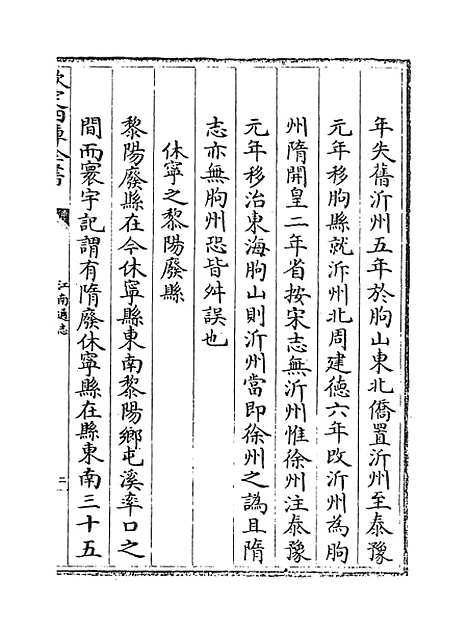 年失舊沂州五年於朐山東北僑置沂州至泰豫
元年移朐縣就沂州北周建德六年改沂州為朐
州隋開皇二年省按宋志無沂州惟徐州注泰豫
元年移治東海朐山則沂州當即徐州之譌且隋
志亦無朐州恐皆舛誤也
休寧之黎陽廢縣
黎陽廢縣在今休寧縣東南黎陽鄉屯溪率口之
間而寰宇記謂有隋廢休寧縣在縣東南三十五
欽定四庫全書
江南通志